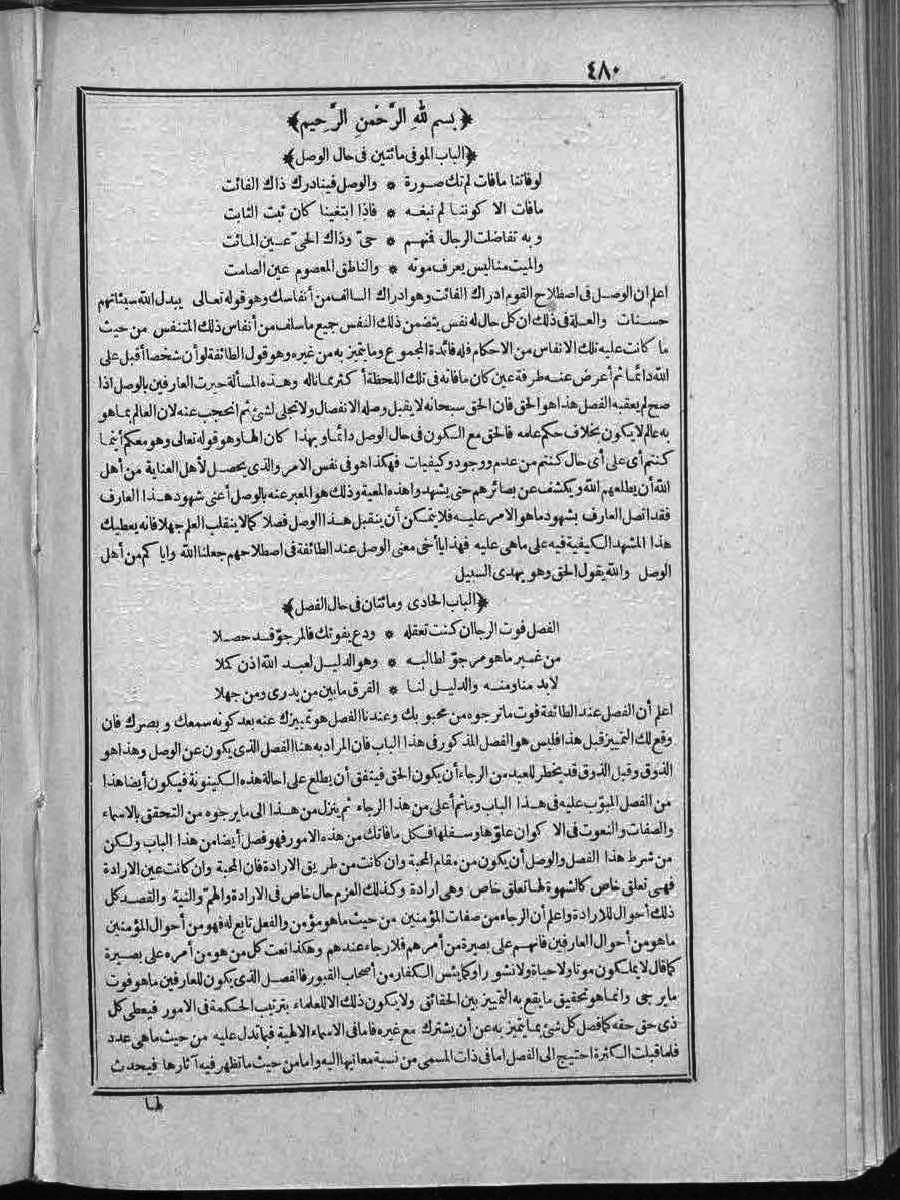 ٤٨٠
﴿بسم الله الرَّحْمنِ الرَّحِيم﴾
﴿الباب الموفى مائتين فى حال الوصل﴾
لو فاتنا ما فات لم نك صورة * والوصل فينا درك ذاك الفائت
ما فات الا كوننا لم نبغه * فاذا ابتغينا كان ثبت الثابت
وبه تفاضلت الرجال فمنهم * حىّ وذاك الحىّ عين المائت
والميت منا ليس يعرف موته * والناطق المعصوم عين الصامت
اعلم ان الوصل فى اصطلاح القوم ادراك الفائت وهو ادراك السالف من أنفاسك وهو قوله تعالى يبدل الله سيئاتهم
حسنات والعلة فى ذلك ان كل حال له نفس يتضمن ذلك النفس جميع ما سلف من أنفاس ذلك المتنفس من حيث
ما كانت عليه تلك الانفاس من الاحكام فله فائدة المجموع وما يتميز به من غيره وهو قول الطائفة لو أن شخصا أقبل على
الله دائما ثم أعرض عنه طرفة عين كان ما فاته فى تلك اللحظة أكثر مما ناله وهذه المسألة حيرت العارفين بالوصل اذا
صح لم يعقبه الفصل هذا هو الحق فان الحق سبحانه لا يقبل وصله الانفصال ولا تجلى لشئ ثم انحجب عنه لان العالم بما هو
به عالم لا يكون بخلاف حكم علمه فالحق مع السكون فى حال الوصل دائما وبهذا كان الها وهو قوله تعالى وهو معكم أينما
كنتم أى على أى حال كنتم من عدم ووجود وكيفيات فهكذا هو فى نفس الامر والذى يحصل لأهل العناية من أهل
الله أن يطلعهم الله ويكشف عن بصائرهم حتى يشهدوا هذه المعية وذلك هو المعبر عنه بالوصل أعنى شهود هذا العارف
فقد اتصل العارف بشهود ما هو الامر عليه فلا يتمكن أن ينقلب هذا الوصل فصلا كما لا ينقلب العلم جهلا فانه يعطيك
هذا المشهد الكيفية فيه على ما هى عليه فهذا يا أخى معنى الوصل عند الطائفة فى اصطلاحهم جعلنا الله واياكم من أهل
الوصل والله يقول الحق وهو يهدى السبيل
﴿الباب الحادى ومائتان فى حال الفصل﴾
الفصل فوت الرجا ان كنت تعقله * ودع يفوتك فالمرجوّ قد حصلا
من غير ما هو مرجوّ لطالبه * وهو الدليل لعبد الله اذن كملا
لابد منا ومنه والدليل لنا * الفرق ما بين من يدرى ومن جهلا
اعلم أن الفصل عند الطائفة فوت ما ترجوه من محبوبك وعندنا الفصل هو تمييزك عنه بعد كونه سمعك وبصرك فان
وقع لك التمييز قبل هذا فليس هو الفصل المذكور فى هذا الباب فان المراد به هنا الفصل الذى يكون عن الوصل وهذا هو
الذوق وقبل الذوق قد يخطر للعبد من الرجاء أن يكون الحق فيتفق أن يطلع على احالة هذه الكينونة فيكون أيضا هذا
من الفصل المبوّب عليه فى هذا الباب وما ثم أعلى من هذا الرجاء ثم ينزل من هذا الى ما يرجوه من التحقق بالاسماء
والصفات والنعوت فى الاكوان علوّها وسفلها فكل ما فاتك من هذه الامور فهو فصل أيضا من هذا الباب ولكن
من شرط هذا الفصل والوصل أن يكون من مقام المحبة وان كانت من طريق الارادة فان المحبة وان كانت عين الارادة
فهى تعلق خاص كالشهوة لها تعلق خاص وهى ارادة وكذلك العزم حال خاص فى الارادة والهمّ والنية والقصد كل
ذلك أحوال للارادة واعلم أن الرجاء من صفات المؤمنين من حيث ما هو مؤمن والفعل تابع له فهو من أحوال المؤمنين
ما هو من أحوال العارفين فانهم على بصيرة من أمرهم فلا رجاء عندهم وهكذا نعت كل من هو من أمره على بصيرة
كما قال لا يملكون موتا ولا حياة ولا نشورا وكما يئس الكفار من أصحاب القبور فالفصل الذى يكون للعارفين ما هو فوت
ما يرجى وانما هو تحقيق ما يقع به التمييز بين الحقائق ولا يكون ذلك الا للعلماء بترتيب الحكمة فى الامور فيعطى كل
ذى حق حقه كما فصل كل شئ بما يتميز به عن أن يشترك مع غيره فاما فى الاسماء الالهية فبما تدل عليه من حيث ما هى عدد
فلما قبلت الكثرة احتيج الى الفصل اما فى ذات المسمى من نسبة معانيها اليه واما من حيث ما تظهر فيه آثارها فيحدث
لها